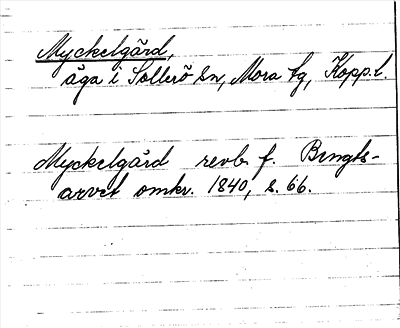 Myckelgård,
äga i Sollerö sn, Mora tg, Kopp.l.
Myckelgård revb. f. Bengts-
arvet omkr. 1840, s. 66.